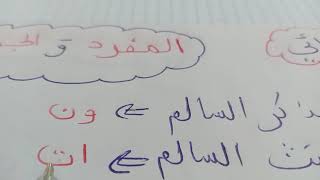 المفرد و
ذكر السالم ⇐ ون
نث السالم ⇐ ات